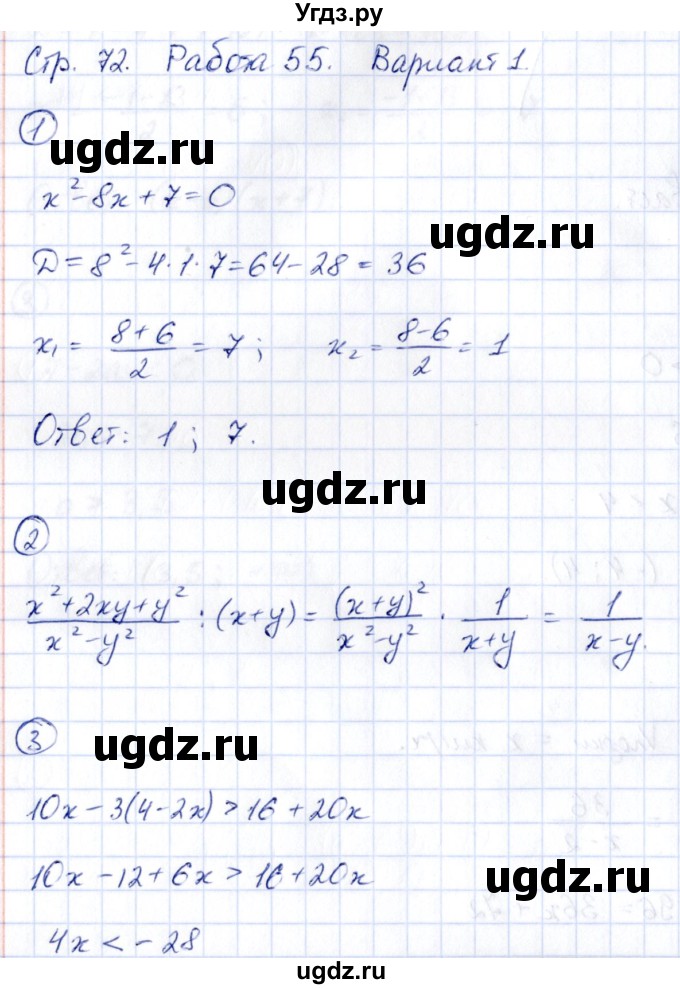 Угдз.ру
Стр. 72. Работа 55. Вариант 1.
1
ugdz.ru
x² - 8x + 7 = 0
ugdz.ru
Д = 8² - 4·1·7 = 64 - 28 = 36
x₁ = (8+6)/2 = 7; x₂ = (8-6)/2 = 1
Ответ: 1; 7.
ugdz.ru
2
(x²+2xy+y²)/(x²-y²) : (x+y) = (x+y)²/(x²-y²) · 1/(x+y) = 1/(x-y).
3
ugdz.ru
10x - 3(4-2x) > 16 + 20x
10x - 12 + 6x > 16 + 20x
ugdz.ru
4x < -28
ugdz.ru